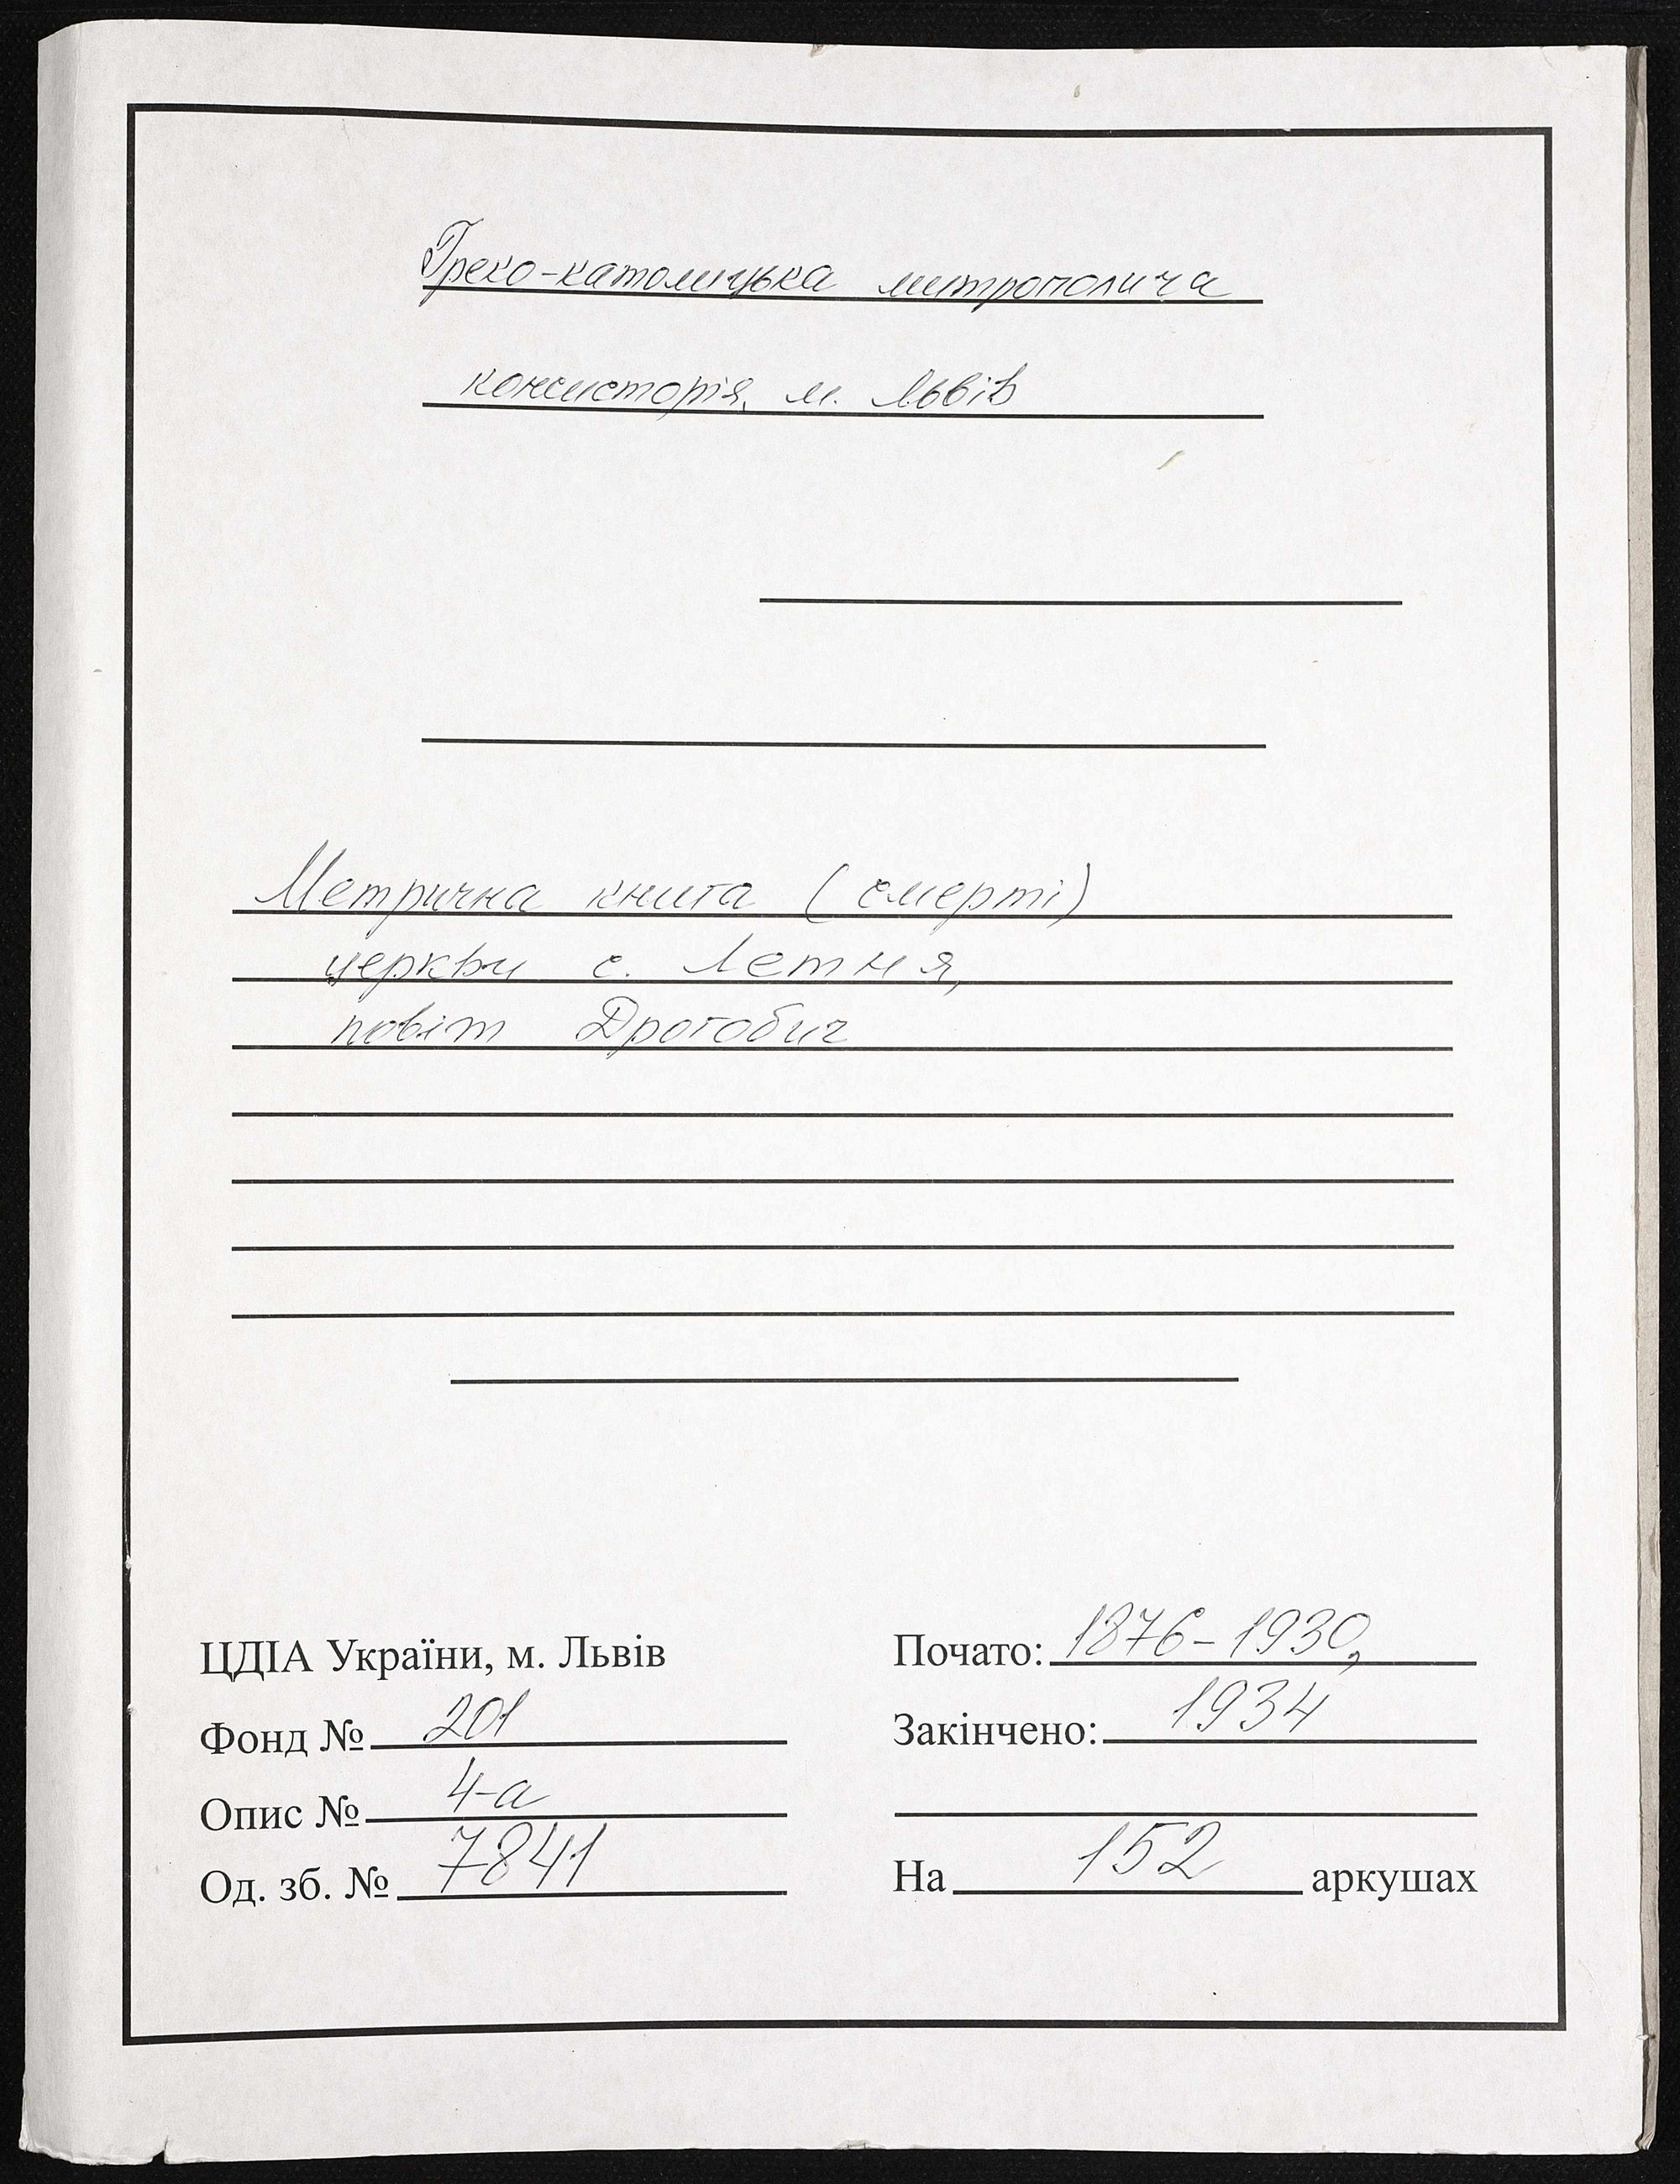 Греко-католицька митрополича
консисторія, м. Львів
Метрична книга (смерті)
церкви с. Летня,
повіт Дрогобич
ЦДІА України, м. Львів
Фонд № 201
Опис № 4-а
Од. зб. № 7841
Почато: 1876-1930,
Закінчено: 1934
На 152 аркушах